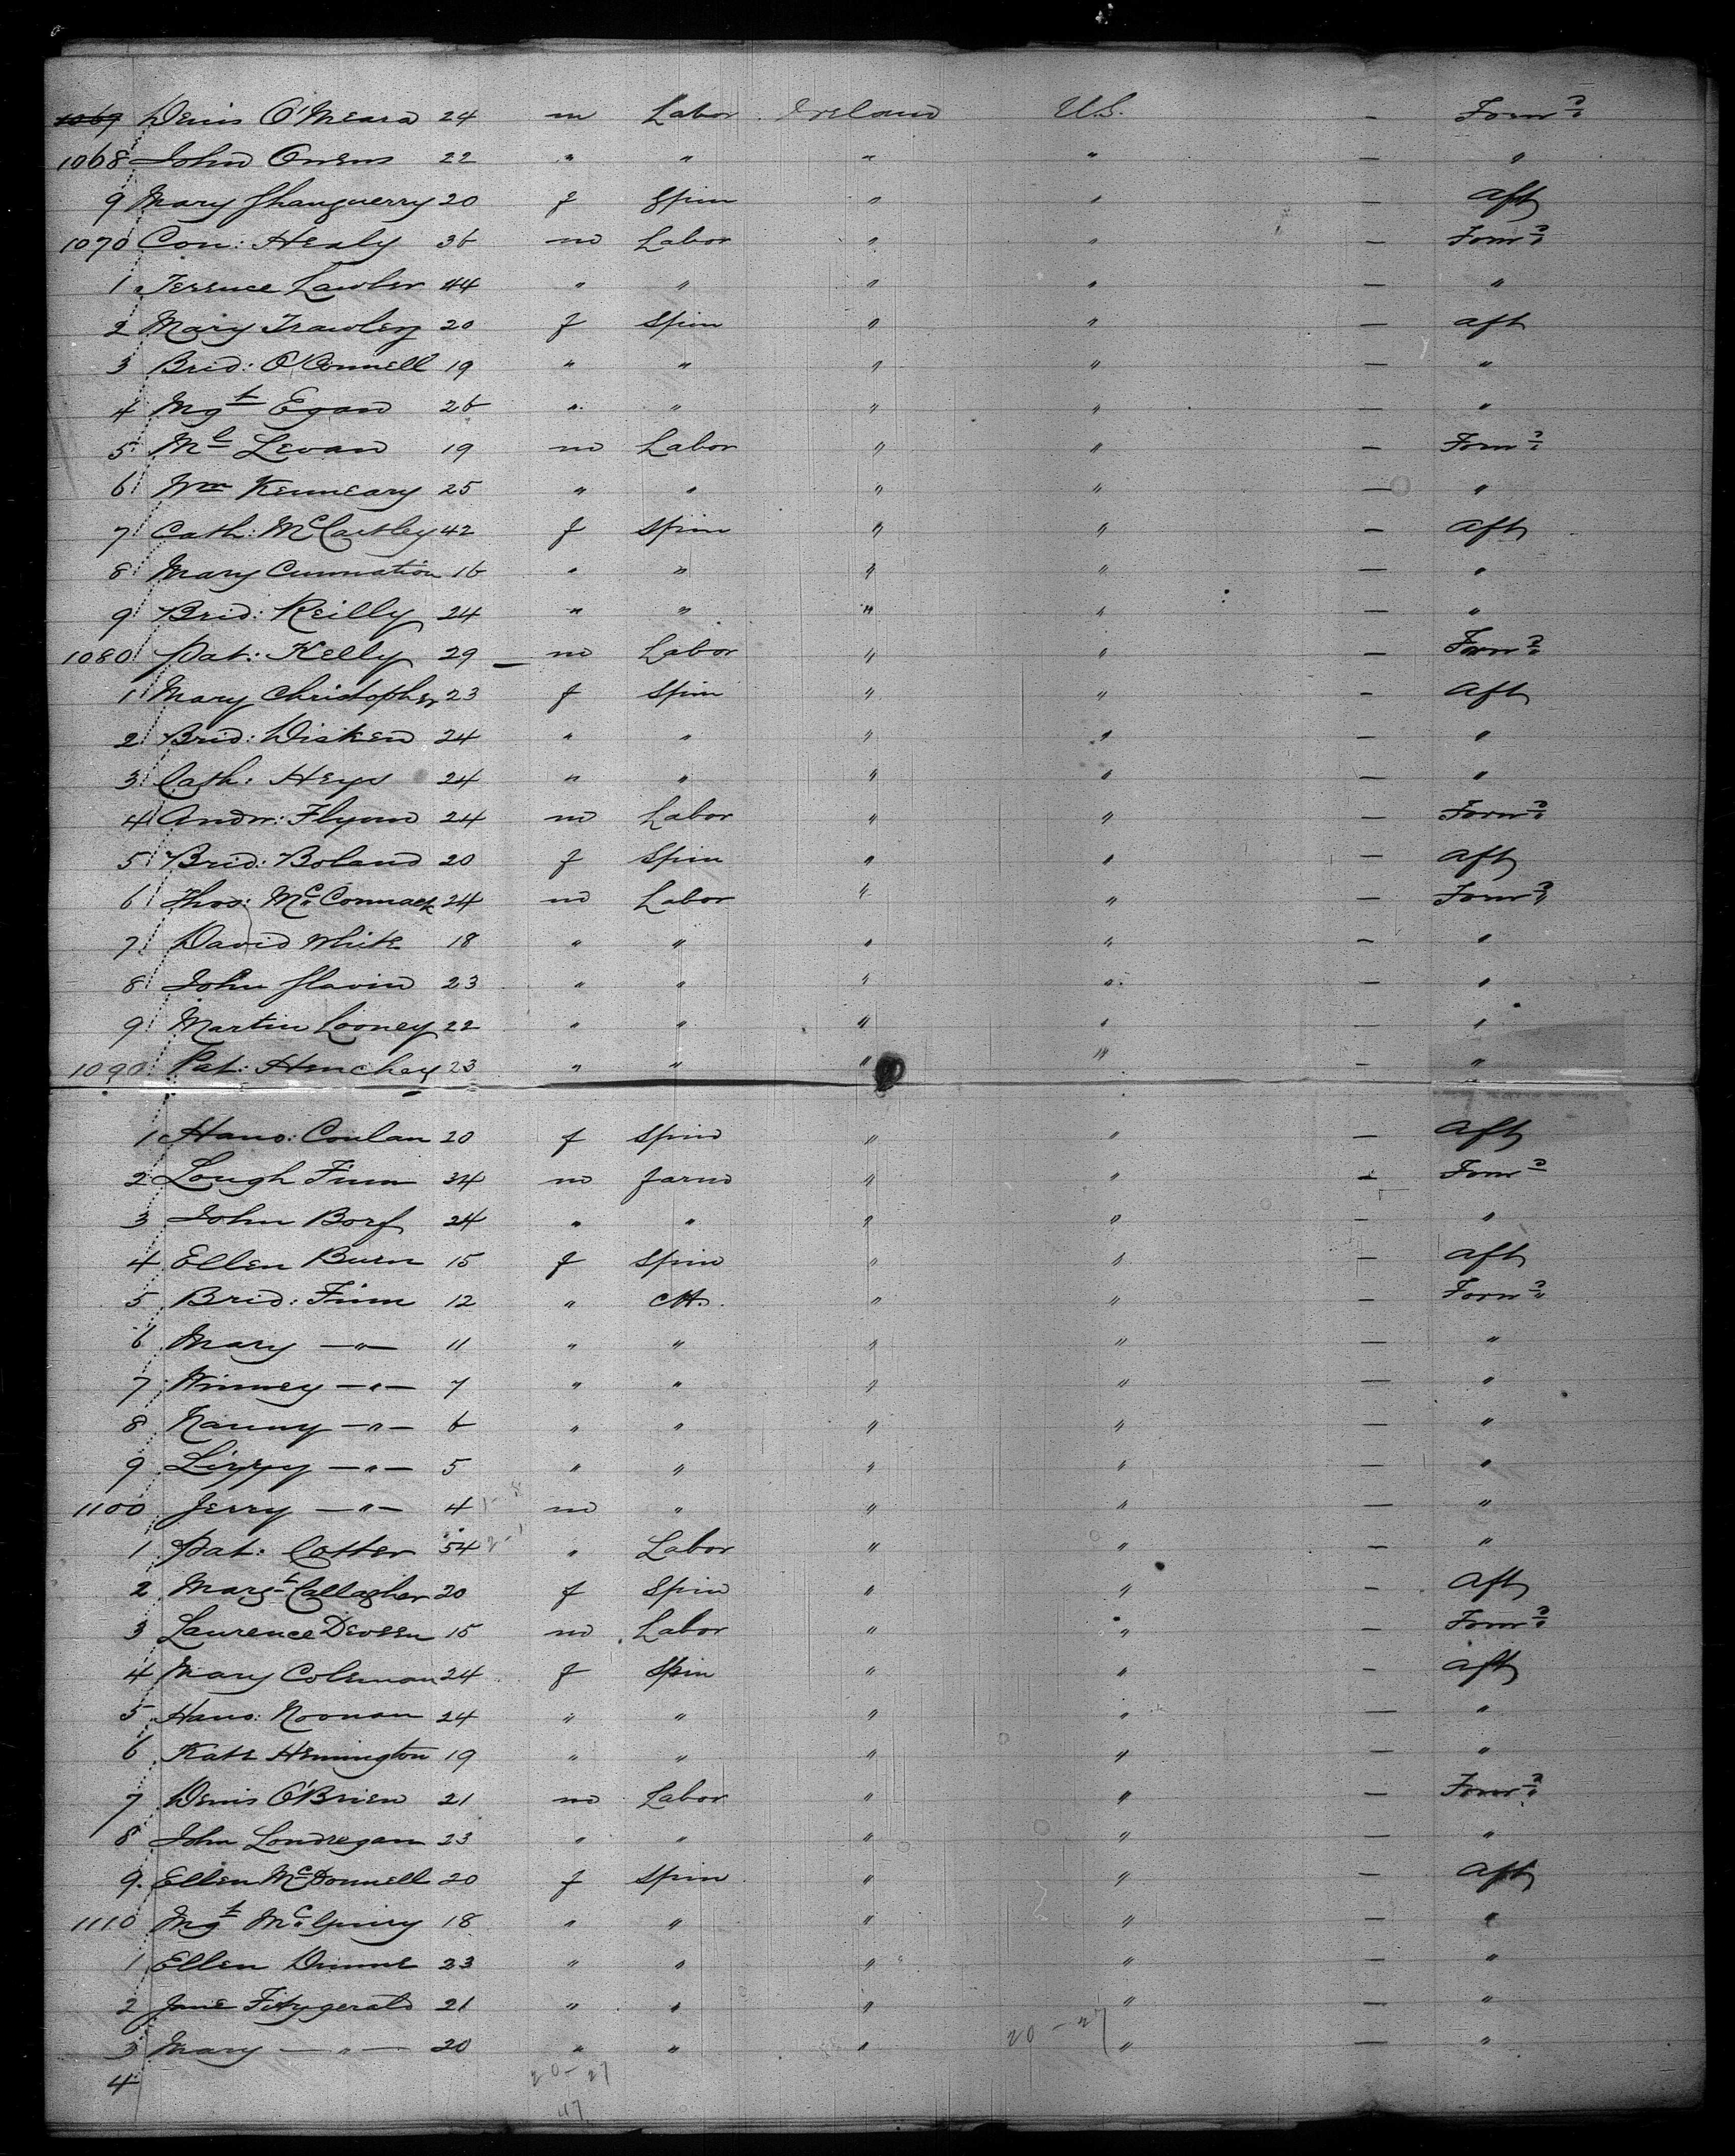 1069 Denis O'Meara 24 m Labor Ireland U.S. — Forwd
1068 John Owens 22 " " " " — "
9 Mary Shanguerry 20 f Spin " " — Aft
1070 Con: Healy 36 m Labor " " — Forwd
1 Terence Lawler 44 " " " " — "
2 Mary Frawley 20 f Spin " " — Aft
3 Brid: O'Connell 19 " " " " — "
4 Mgt Egan 26 " " " " — "
5 Ml Levan 19 m Labor " " — Forwd
6 Wm Kenneary 25 " " " " — "
7 Cath: McCarthy 42 f Spin " " — Aft
8 Mary Cunnation 16 " " " " — "
9 Brid: Reilly 24 " " " " — "
1080 Pat: Kelly 29 — m Labor " " — Forwd
1 Mary Christopher 23 f Spin " " — Aft
2 Brid: Disken 24 " " " " — "
3 Cath: Heys 24 " " " " — "
4 Andw: Flynn 24 m Labor " " — Forwd
5 Brid: Boland 20 f Spin " " — Aft
6 Thos: McConnack 24 m Labor " " — Forwd
7 David White 18 " " " " — "
8 John Slavin 23 " " " " — "
9 Martin Looney 22 " " " " — "
1090 Pat: Henchey 23 " " " " — "
1 Hano: Conlan 20 f Spin " " — Aft
2 Lough Finn 34 m Farm " " — Forwd
3 John 24 " " " " — "
4 Ellen Burn 15 f Spin " " — Aft
5 Brid: Finn 12 " Ch. " " — Forwd
6 Mary —"— 11 " " " " — "
7 Winney —"— 7 " " " " — "
8 Nanny —"— 6 " " " " — "
9 Lizzy —"— 5 " " " " — "
1100 Jerry —"— 4 m " " " — "
1 Pat: Cotter 54 " Labor " " — "
2 Margt Callagher 20 f Spin " " — Aft
3 Laurence Deveen 15 m Labor " " — Forwd
4 Mary Coleman 24 f Spin " " — Aft
5 Hano: Noonan 24 " " " " — "
6 Kate Hennington 19 " " " " — "
7 Denis O'Brien 21 m Labor " " — Forwd
8 John Londregan 23 " " " " — "
9. Ellen McDonnell 20 f Spin " " — Aft
1110 Mgt 18 " " " " — "
1 Ellen Dunne 23 " " " " — "
2 Jane Fitzgerald 21 " " " " — "
3 Mary —"— 20 " " " 20-27 " — "
4 20-27
47